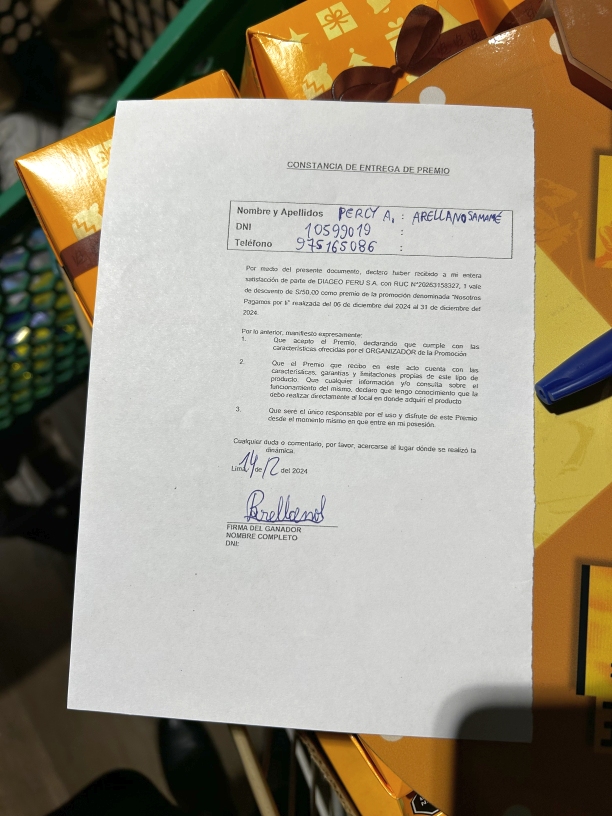 CONSTANCIA DE ENTREGA DE PREMIO
Nombre y Apellidos PERCY A. : ARELLANO SAMAMÉ
DNI 10599019 :
Teléfono 975165086 :
Por medio del presente documento, declaro haber recibido a mi entera
satisfacción de parte de DIAGEO PERU S.A. con RUC N°20263158327, 1 vale
de descuento de S/50.00 como premio de la promoción denominada "Nosotros
Pagamos por ti" realizada del 06 de diciembre del 2024 al 31 de diciembre del
2024.
Por lo anterior, manifiesto expresamente:
1. Que acepto el Premio, declarando que cumple con las
características ofrecidas por el ORGANIZADOR de la Promoción
2. Que el Premio que recibo en este acto cuenta con las
características, garantías y limitaciones propias de este tipo de
producto. Que cualquier información y/o consulta sobre el
funcionamiento del mismo, declaro que tengo conocimiento que la
debo realizar directamente al local en donde adquirí el producto
3. Que seré el único responsable por el uso y disfrute de este Premio
desde el momento mismo en que entre en mi posesión.
Cualquier duda o comentario, por favor, acercarse al lugar dónde se realizó la
dinámica.
Lima, 14 de 12 del 2024
Parellanos
FIRMA DEL GANADOR
NOMBRE COMPLETO
DNI: